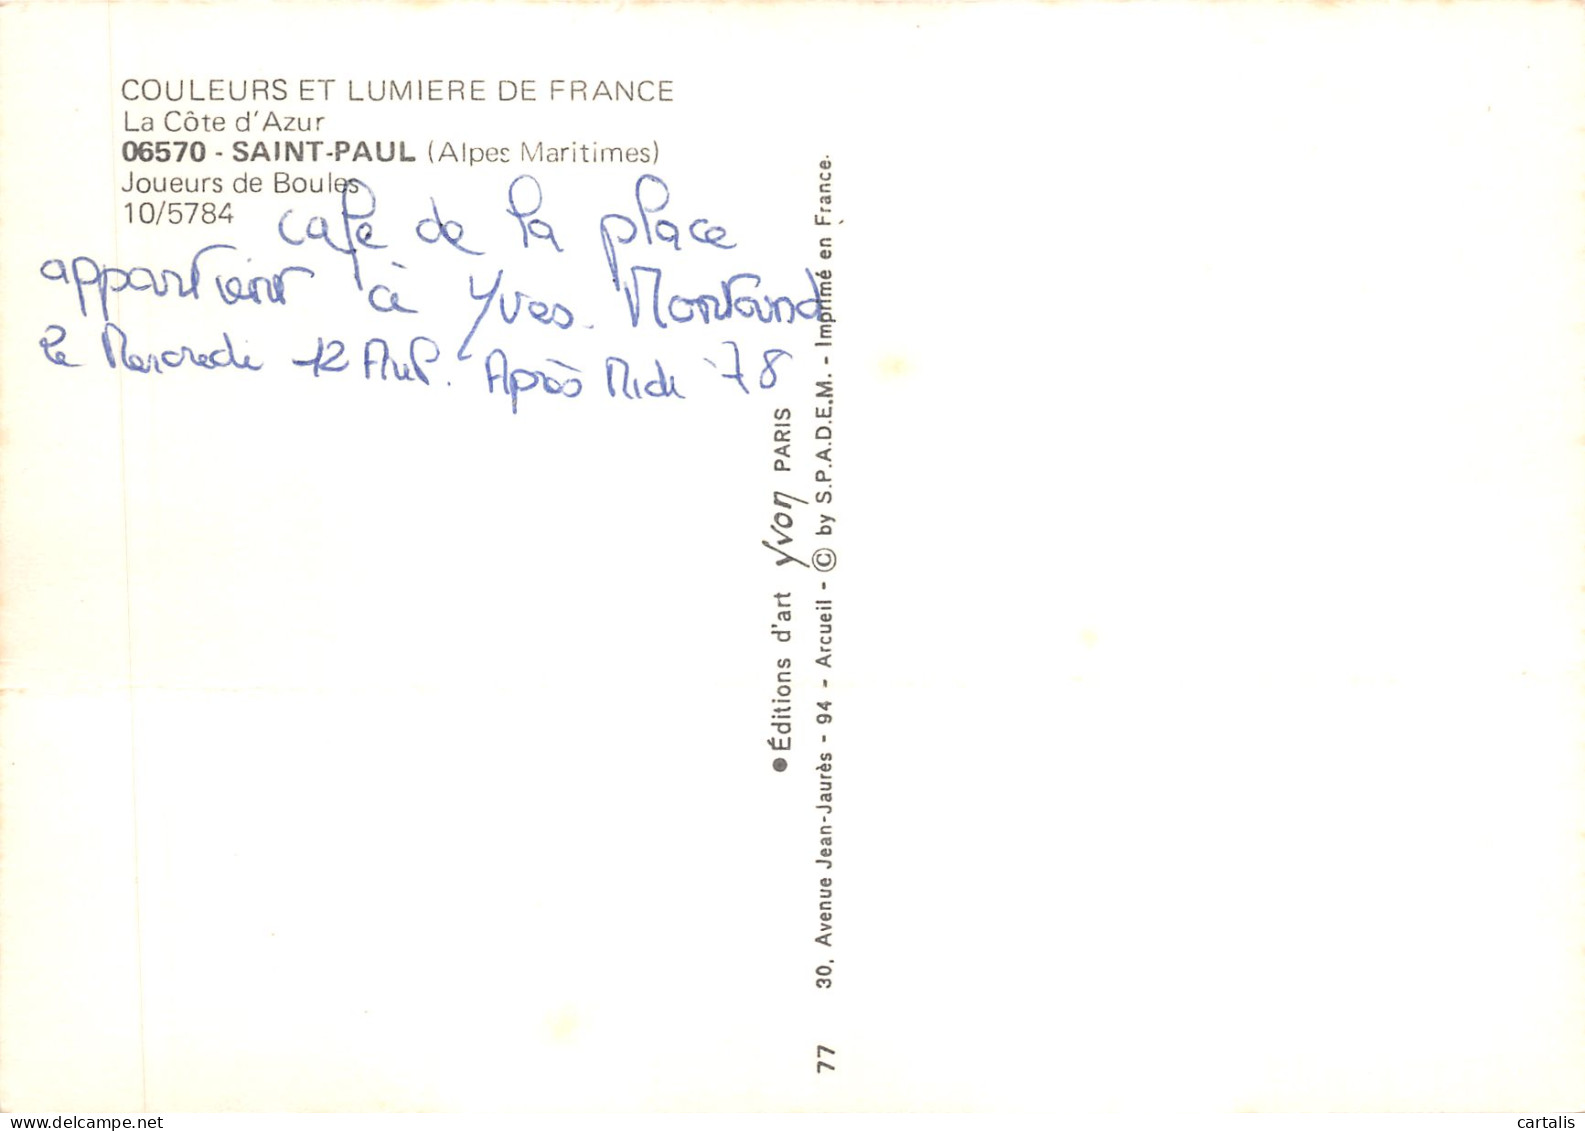 COULEURS ET LUMIERE DE FRANCE
La Côte d'Azur
06570 - SAINT-PAUL (Alpes Maritimes)
Joueurs de Boules
10/5784
café de la place
appartient à Yves Montand
le Mercredi 12 Avr. Après Midi 78
●Éditions d'art Yvon PARIS
30, Avenue Jean-Jaurès - 94 - Arcueil - © by S.P.A.D.E.M. - Imprimé en France.
77
delcampe.net
cartalis